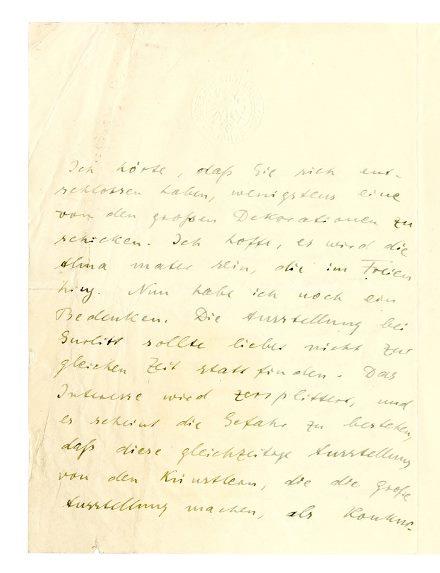 Ich hörte, daß Sie sich ent-
schlossen haben, wenigstens eine
von den großen Dekorationen zu
schicken. Ich hoffe, es wird die
Alma mater sein, die im Freien
hing. Nun habe ich noch ein
Bedenken. Die Ausstellung bei
Gurlitt sollte lieber nicht zur
gleichen Zeit stattfinden. Das
Interesse wird zersplittert, und
es scheint die Gefahr zu bestehen,
daß diese gleichzeitige Ausstellung
von den Künstlern, die die große
Ausstellung machen, als Konkur-